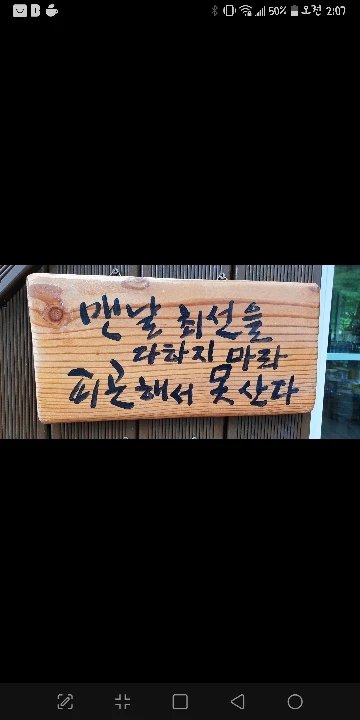 50% 오전 2:07
맨날 최선을
다하지 마라
피곤해서 못 산다